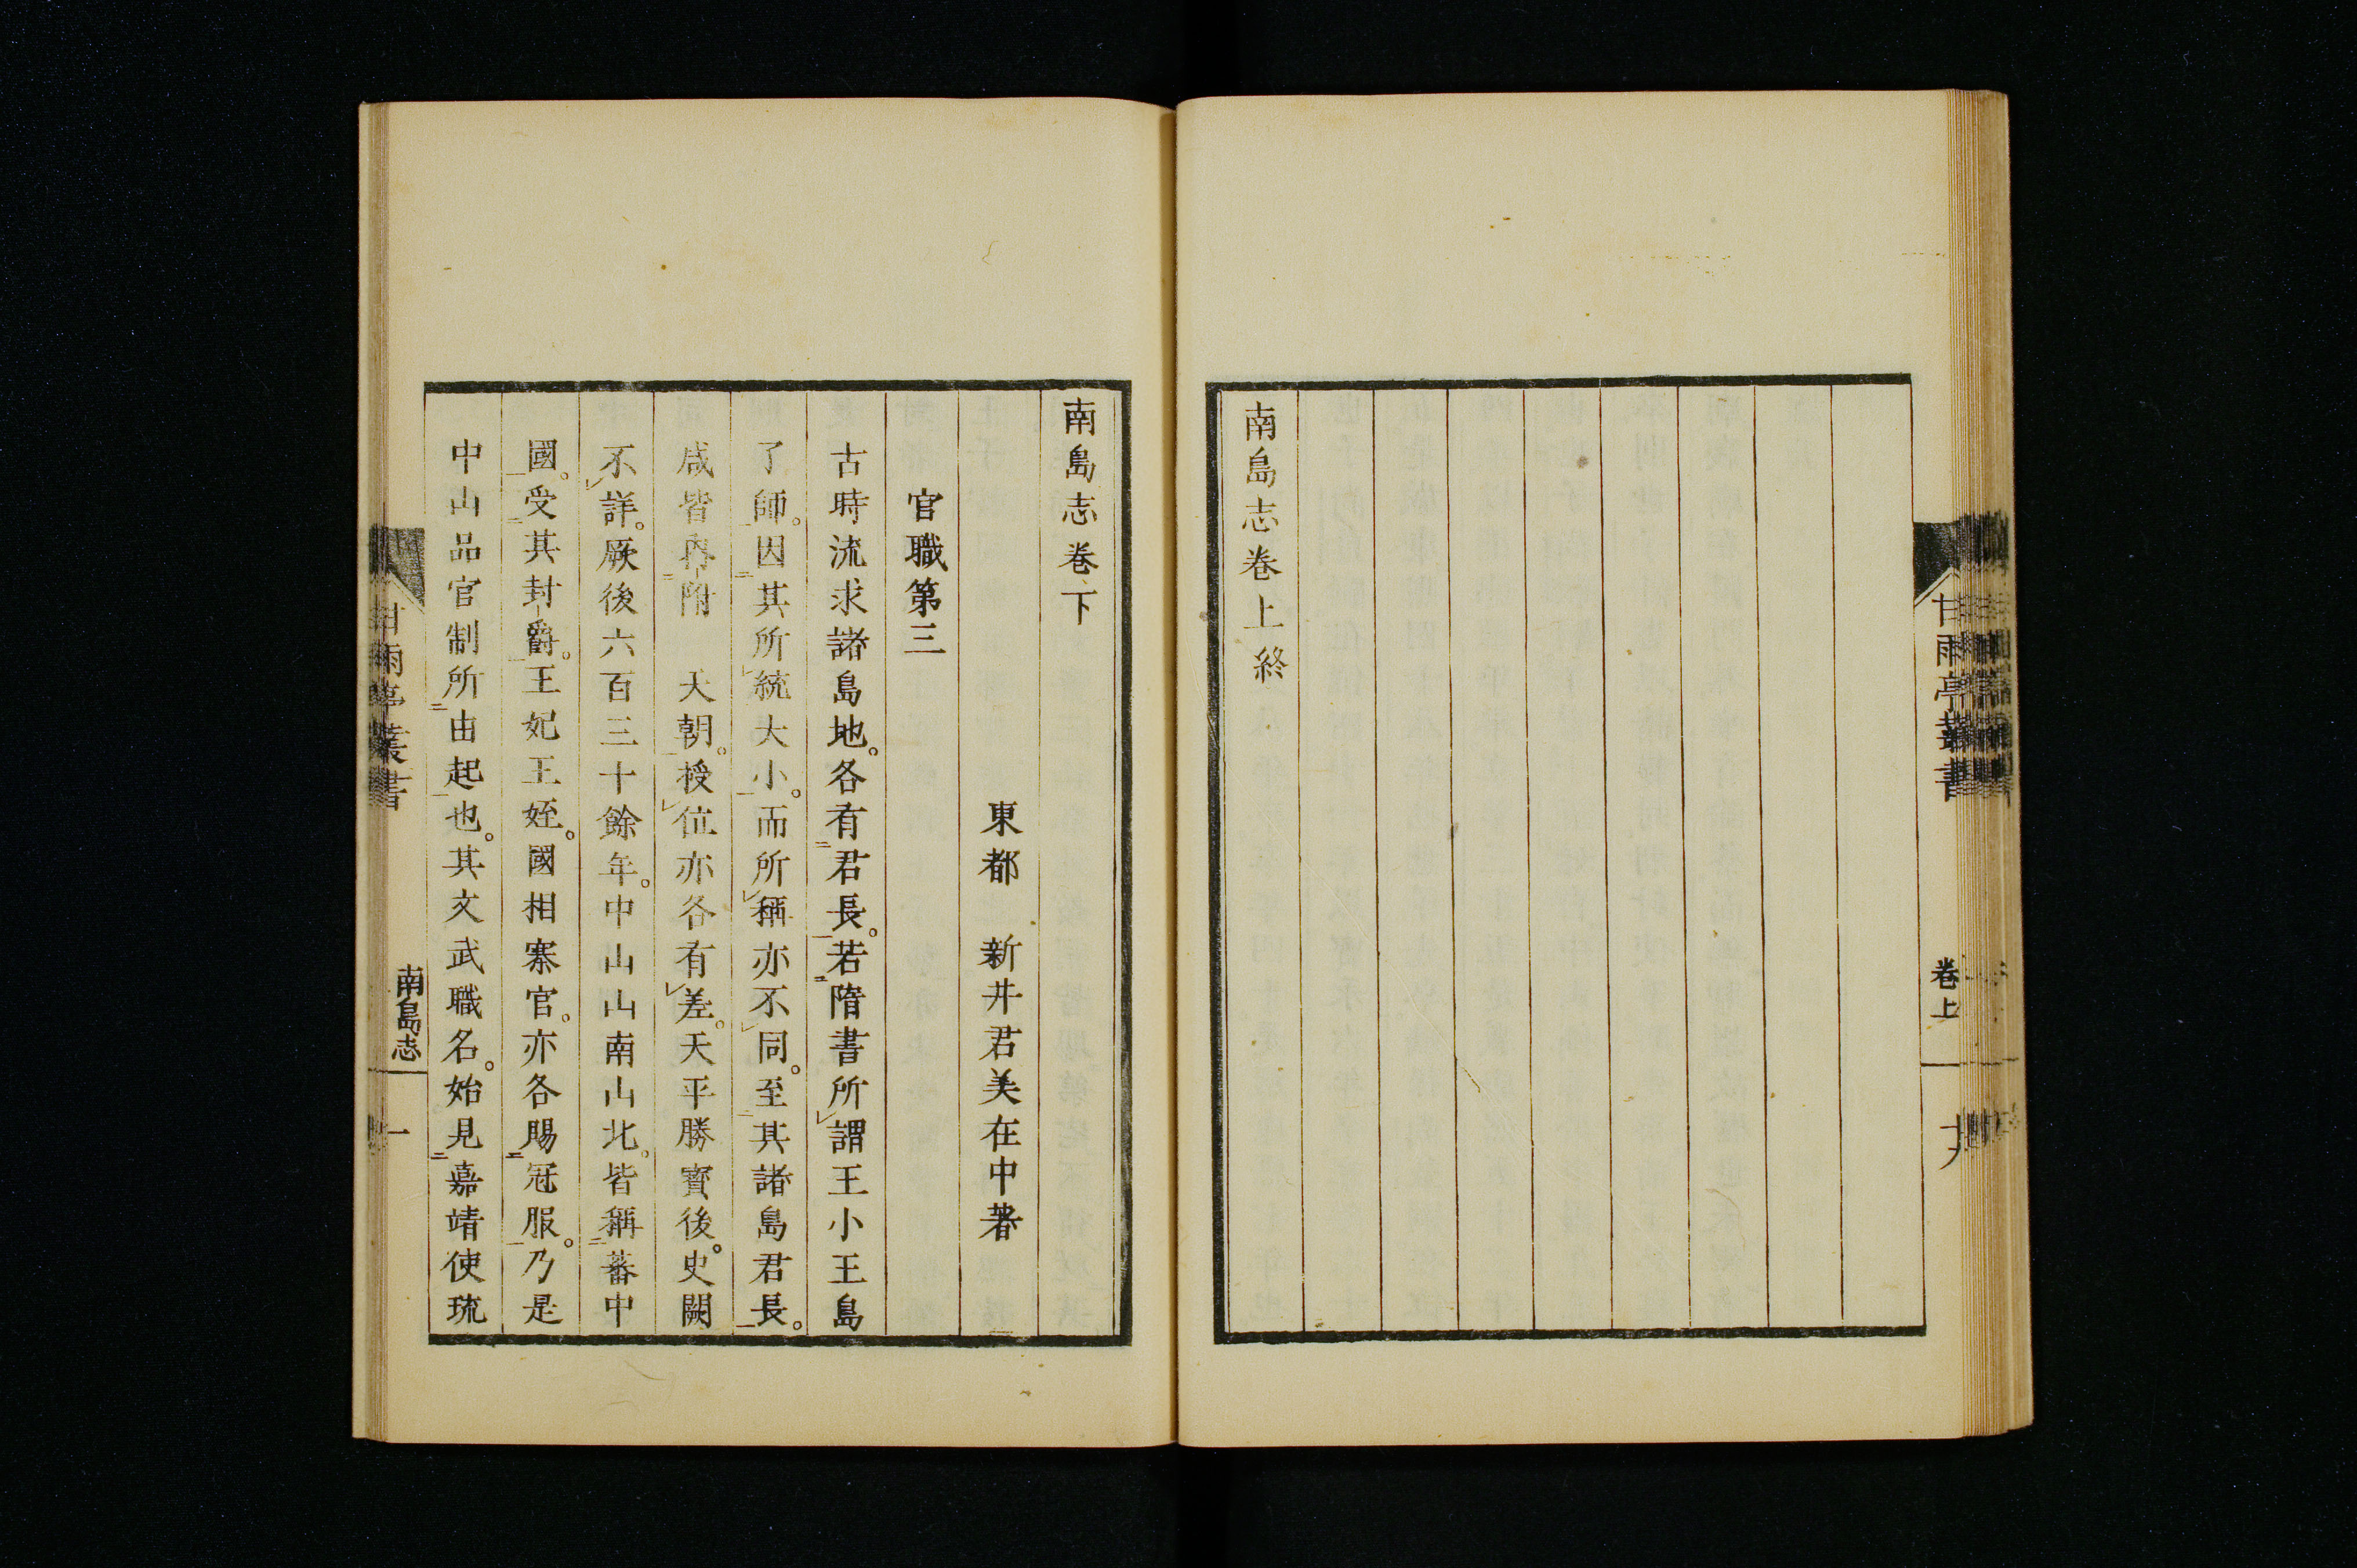 南島志卷上終
甘雨亭叢書
卷上
南島志卷下
東都 新井君美在中著
官職第三
古時流求諸島地。各有君長。若隋書所謂王小王島
了師。因其所統大小。而所稱亦不同。至其諸島君長。
咸皆內附 天朝。授位亦各有差。天平勝寳後。史闕
不詳。厥後六百三十餘年。中山山南山北。皆稱蕃中
國。受其封爵。王妃王姪。國相寨官。亦各賜冠服。乃是
中山品官制所由起也。其文武職名。始見嘉靖使琉
甘雨亭叢書
南島志
一